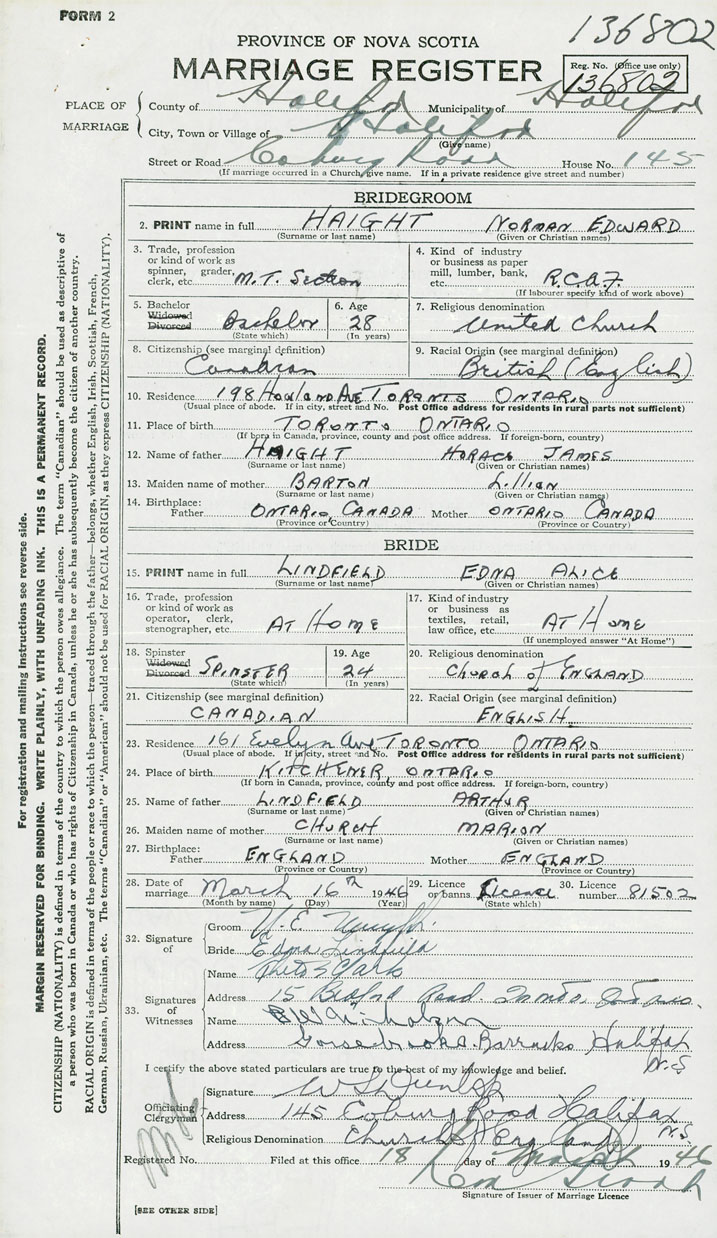 FORM 2
136802
PROVINCE OF NOVA SCOTIA
MARRIAGE REGISTER
Reg. No. (Office use only)
136802
PLACE OF MARRIAGE
County of Halifax Municipality of Halifax
City, Town or Village of Halifax
(Give name)
Street or Road Coburg Road House No. 145
(If marriage occurred in a Church, give name. If in a private residence give street and number)
BRIDEGROOM
2. PRINT name in full HAIGHT NORMAN EDWARD
(Surname or last name) (Given or Christian names)
3. Trade, profession or kind of work as spinner, grader, clerk, etc. M.T. Section
4. Kind of industry or business as paper mill, lumber, bank, etc. R.C.A.F.
(If labourer specify kind of work above)
5. Bachelor Widowed Divorced Bachelor
(State which)
6. Age 28
(In years)
7. Religious denomination United Church
8. Citizenship (see marginal definition) Canadian
9. Racial Origin (see marginal definition) British (English)
10. Residence 198 Howland Ave TORONTO ONTARIO
(Usual place of abode. If in city, street and No. Post Office address for residents in rural parts not sufficient)
11. Place of birth TORONTO ONTARIO
(If born in Canada, province, county and post office address. If foreign-born, country)
12. Name of father HAIGHT HORACE JAMES
(Surname or last name) (Given or Christian names)
13. Maiden name of mother BARTON Lillian
(Surname or last name) (Given or Christian names)
14. Birthplace: Father ONTARIO, CANADA Mother ONTARIO CANADA
(Province or Country) (Province or Country)
BRIDE
15. PRINT name in full LINDFIELD EDNA ALICE
(Surname or last name) (Given or Christian names)
16. Trade, profession or kind of work as operator, clerk, stenographer, etc. AT HOME
17. Kind of industry or business as textiles, retail, law office, etc. AT HOME
(If unemployed answer "At Home")
18. Spinster Widowed Divorced SPINSTER
(State which)
19. Age 24
(In years)
20. Religious denomination Church of ENGLAND
21. Citizenship (see marginal definition) CANADIAN
22. Racial Origin (see marginal definition) ENGLISH.
23. Residence 161 Evelyn Ave TORONTO ONTARIO
(Usual place of abode. If in city, street and No. Post Office address for residents in rural parts not sufficient)
24. Place of birth KITCHENER ONTARIO
(If born in Canada, province, county and post office address. If foreign-born, country)
25. Name of father LINDFIELD ARTHUR
(Surname or last name) (Given or Christian names)
26. Maiden name of mother CHURCH MARION
(Surname or last name) (Given or Christian names)
27. Birthplace: Father ENGLAND Mother ENGLAND
(Province or Country) (Province or Country)
28. Date of marriage March 16th 1946
(Month by name) (Day) (Year)
29. Licence or banns Licence
(State which)
30. Licence number 81502
32. Signature of
Groom N. E.
Bride Edna Lindfield
33. Signatures of Witnesses
Name Clark
Address 15 Bedford Road. Toronto
Name Nicholson
Address Gorsebrook Barracks Halifax N.S
I certify the above stated particulars are true to the best of my knowledge and belief.
Officiating Clergyman
Signature W S Dunlop
Address 145 Coburg Road Halifax N.S.
Religious Denomination Church of England
Registered No. Filed at this office 18 day of March 1946
Signature of Issuer of Marriage Licence
[SEE OTHER SIDE]
For registration and mailing instructions see reverse side.
MARGIN RESERVED FOR BINDING. WRITE PLAINLY, WITH UNFADING INK. THIS IS A PERMANENT RECORD.
CITIZENSHIP (NATIONALITY) is defined in terms of the country to which the person owes allegiance. The term "Canadian" should be used as descriptive of
a person who was born in Canada or who has rights of Citizenship in Canada, unless he or she has subsequently become the citizen of another country.
RACIAL ORIGIN is defined in terms of the people or race to which the person—traced through the father—belongs, whether English, Irish, Scottish, French,
German, Russian, Ukrainian, etc. The terms "Canadian" or "American" should not be used for RACIAL ORIGIN, as they express CITIZENSHIP (NATIONALITY).